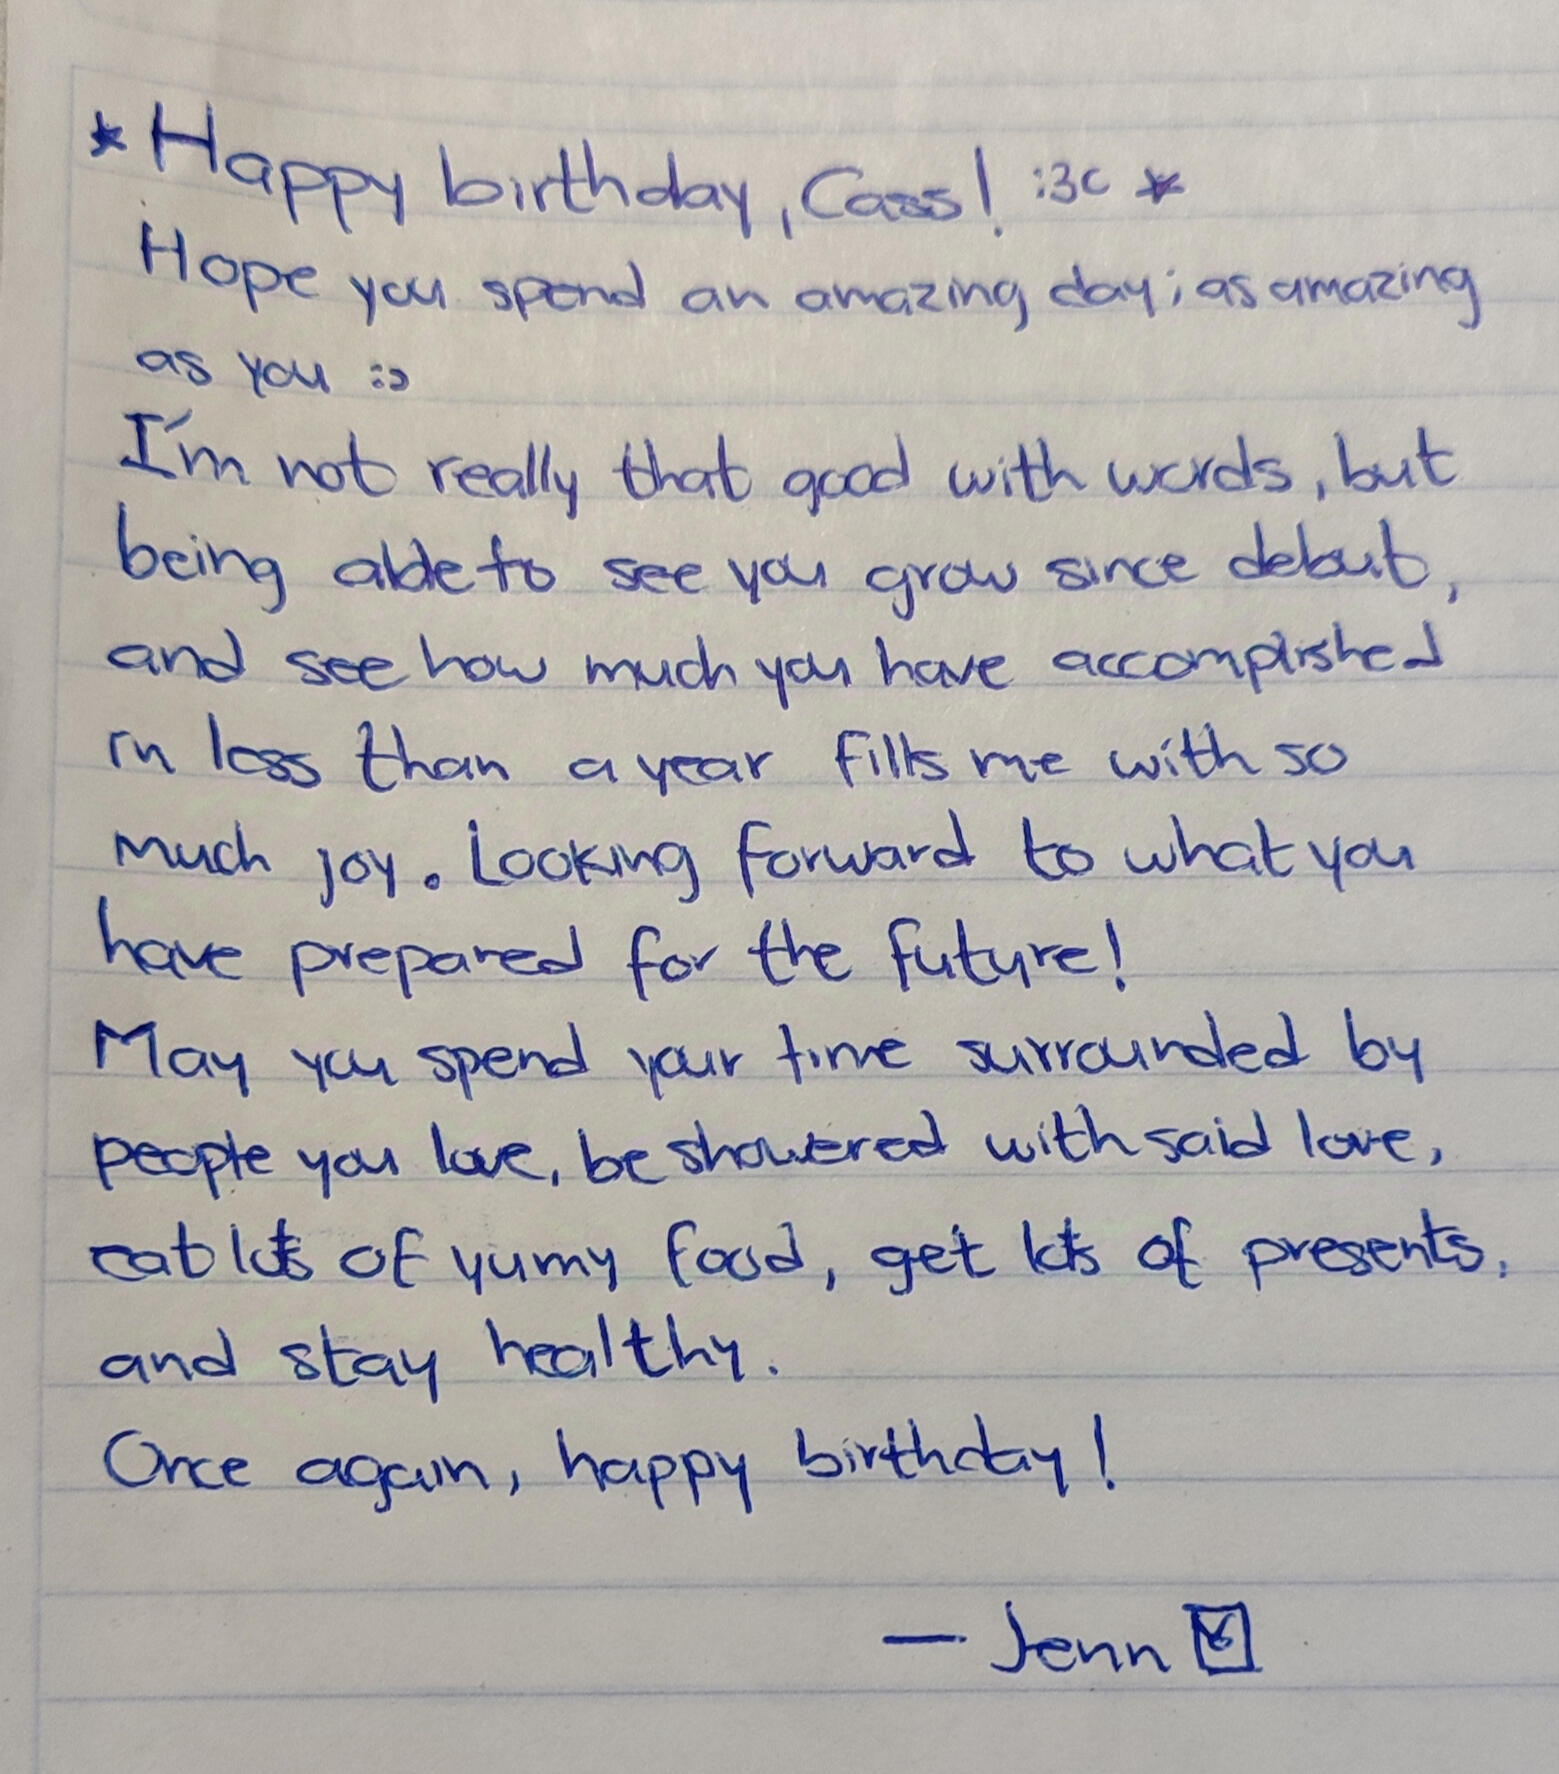 ★ Happy birthday, Cass! :3c ★
Hope you spend an amazing day; as amazing
as you :>
I'm not really that good with words, but
being able to see you grow since debut,
and see how much you have accomplished
in less than a year fills me with so
much joy. Looking forward to what you
have prepared for the future!
May you spend your time surrounded by
people you love, be showered with said love,
eat lots of yumy food, get lots of presents,
and stay healthy.
Once again, happy birthday!
— Jenn